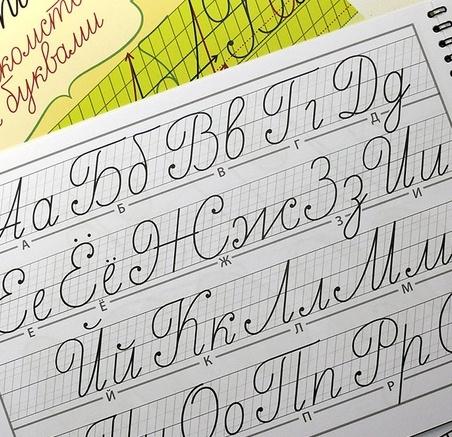 комство
буквами
Аа Бб Вв Гг Дд
А Б В Г Д
Ее Ёё Жж Зз Ии
Е Ё Ж З И
Йй Кк Лл Мм
Й К Л М
Оо Пп Рр
П Р